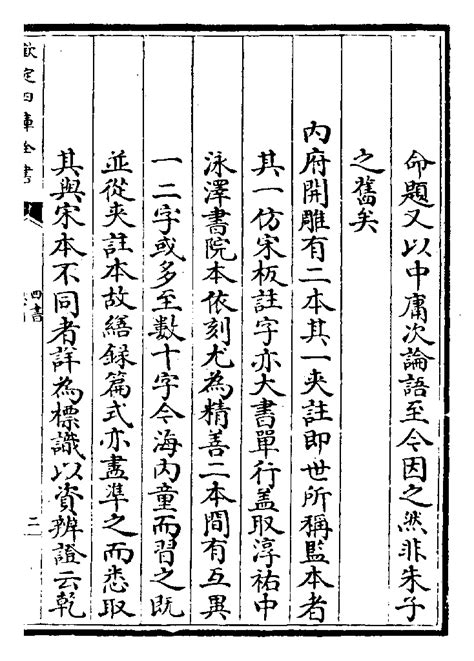 命題又以中庸次論語至今因之然非朱子
之舊矣
内府開雕有二本其一夾註即世所稱監本者
其一仿宋板註字亦大書單行盖取淳祐中
泳澤書院本依刻尤為精善二本間有互異
一二字或多至數十字今海内童而習之既
並從夾註本故繕録篇式亦盡凖之而悉取
其與宋本不同者詳為標識以資辨證云乾
欽定四庫全書
四書
二